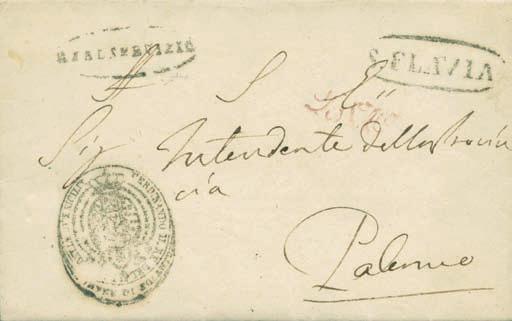 REAL SERVIZIO
S. FLAVIA
A S E
Sig Intendente della Provin
cia
Palermo
FERDINANDO II